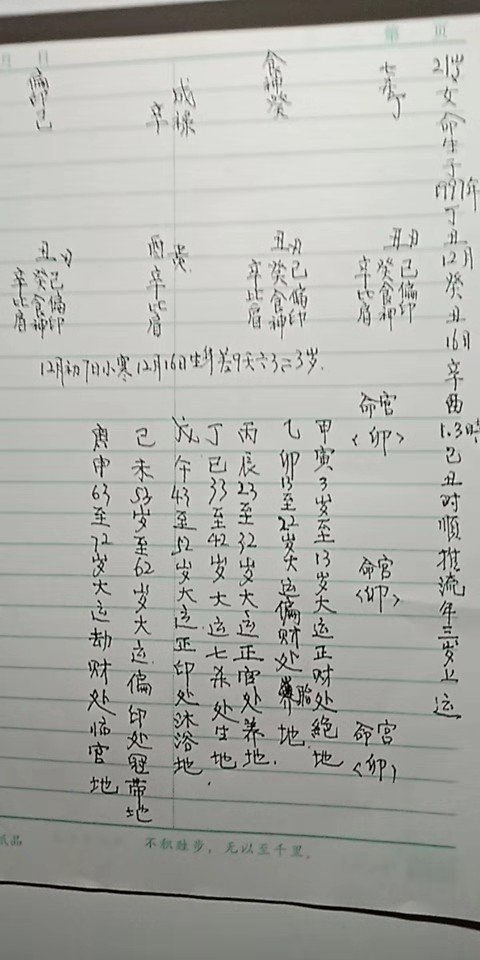 第 页
月 日
21岁女命生于1997年丁丑12月癸丑16日辛酉1.3时己丑时顺推流年三岁上运
七杀丁
食神癸
成禄
辛
偏印己
丑月
己偏印
癸食神
辛比肩
丑月
己偏印
癸食神
辛比肩
酉
辛比肩
丑月
己偏印
癸食神
辛比肩
12月初7日小寒12月16日生年差9天
3岁.
命宫
<卯>
命宫
<卯>
命宫
<卯>
甲寅3岁至13岁大运正财处绝地
乙卯13至22岁大运偏财处胎地.
丙辰23至32岁大运正官处养地.
丁巳33至42岁大运七杀处生地.
戊午43至52岁大运正印处沐浴地
己未53岁至62岁大运偏印处冠带地
庚申63至72岁大运劫财处临官地
纸品
不积跬步，无以至千里。